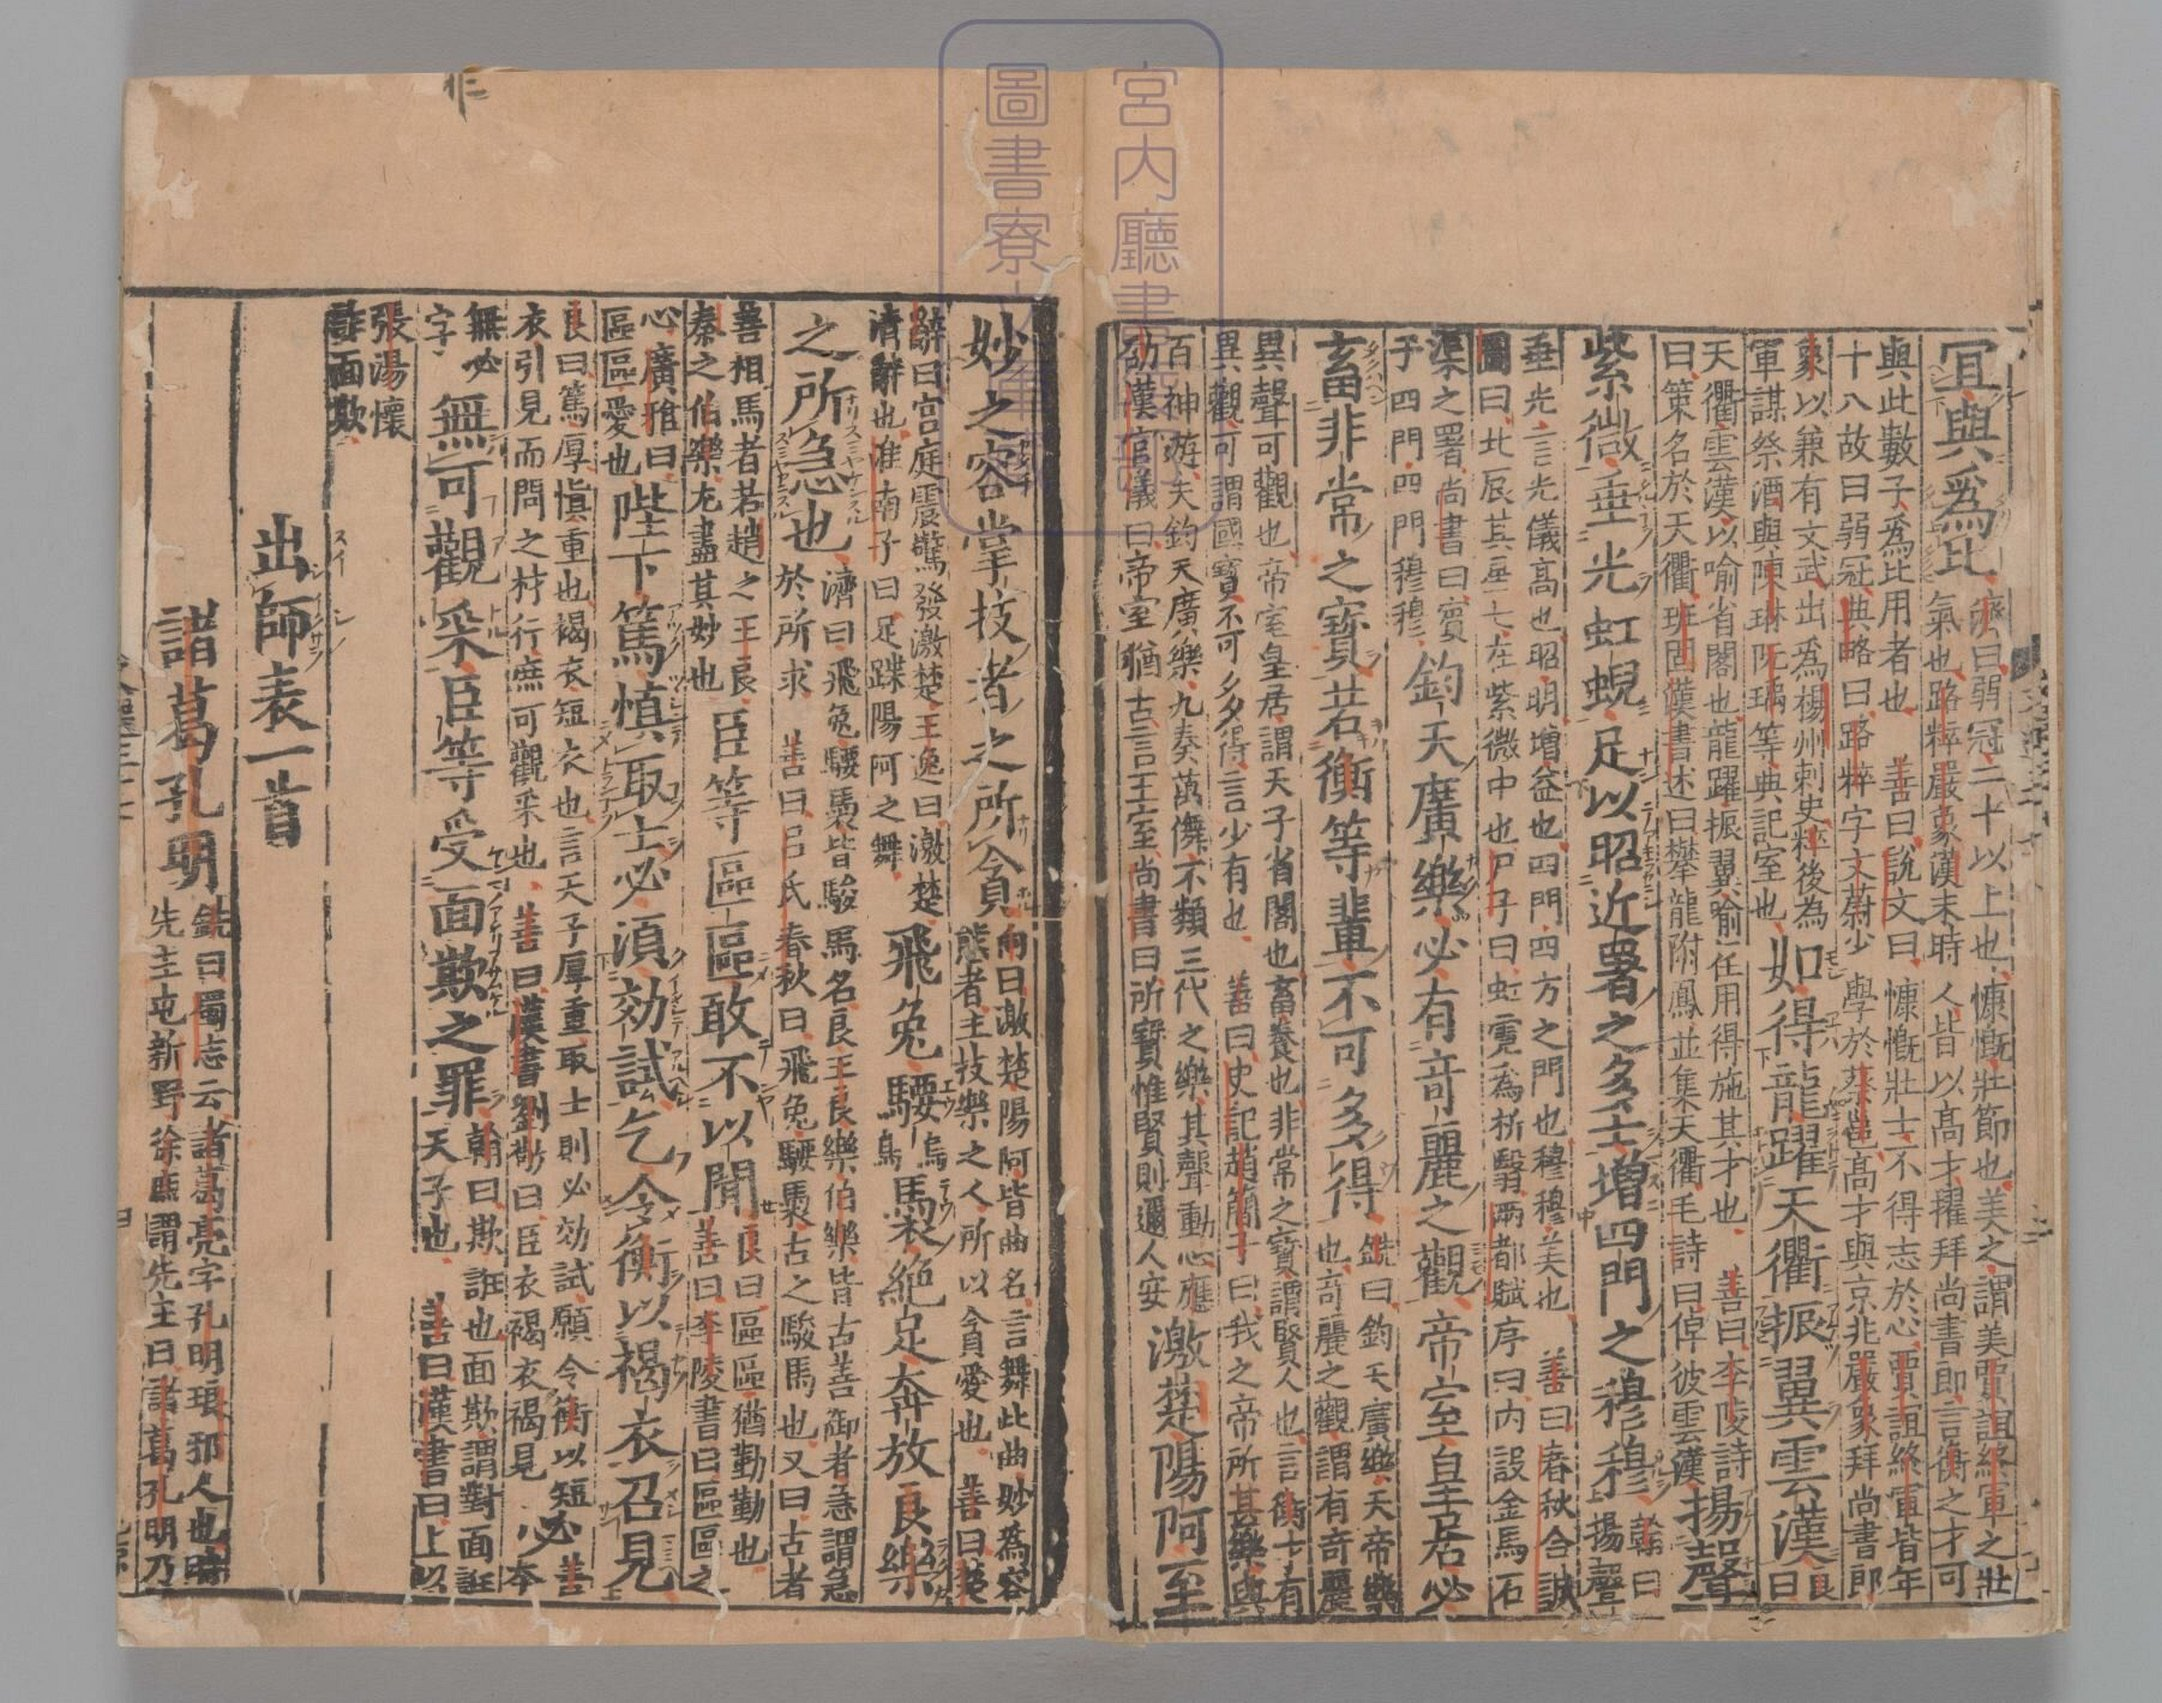 冝與爲比
濟曰弱冠二十以上也慷慨壯節也美之謂美賈誼終軍之壯
氣也路粹嚴象漢末時人皆以高才擢拜尚書郎言衡之才可
與此數子爲比用者也 善曰說文曰慷慨壯士不得志於心賈誼終軍皆年
十八故曰弱冠典略曰路粹字文蔚少學於蔡邕高才與京兆嚴象拜尚書郎
象以兼有文武出爲楊州刺史粹後為
軍謀祭酒與陳琳阮瑀等典記室也
如得龍躍天衢振翼雲漢
良
曰
天衢雲漢以喻省閣也龍躍振翼喻任用得施其才也 善曰李陵詩
曰策名於天衢班固漢書述曰攀龍附鳳並集天衢毛詩曰倬彼雲漢
揚聲
紫微垂光虹蜺足以昭近署之多士增四門之穆穆
翰曰
上揚聲
垂光言光儀高也昭明增益也四門四方之門也穆穆美也 善曰春秋合誠
圖曰北辰其星七在紫微中也尸子曰虹霓為析翳兩都賦序曰内設金馬石
渠之署尚書曰賓
于四門四門穆穆
鈞天廣樂必有奇麗之觀帝室皇居必
畜非常之寶若衡等輩不可多得
銑曰鈞天廣樂天帝樂
也奇麗之觀謂有奇麗
異聲可觀也帝室皇居謂天子省閣也畜養也非常之寶謂賢人也言衡士有
異觀可謂國寶不可多得言少有也 善曰史記趙簡子曰我之帝所甚樂與
百神遊夫鈞天廣樂九奏萬儛不類三代之樂其聲動心應
劭漢官儀曰帝室猶古言王室尚書曰所寶惟賢則邇人安
激楚陽阿至
妙之容掌技者之所貪
向曰激楚陽阿皆曲名言舞此曲妙爲容
態者主技樂之人所以貪愛也 善曰楚
辭曰宫庭震驚發激楚王逸曰激楚
清聲也淮南子曰足蹀陽阿之舞
飛兔騕褭絶足奔放良樂
之所急也
濟曰飛兔騕褭皆駿馬名良王良樂伯樂皆古善御者急謂急
於所求 善曰吕氏春秋曰飛兔騕褭古之駿馬也又曰古者
善相馬者若趙之王良
秦之伯樂尤盡其妙也
臣等區區敢不以聞
良曰區區猶勤勤也
善曰李陵書曰區區之
心廣雅曰
區區愛也
陛下篤慎取士必須効試乞令衡以褐衣召見
良曰篤厚慎重也褐衣短衣也言天子厚重取士則必効試願令衡以短
衣引見而問之材行庶可觀采也 善曰漢書劉敬曰臣衣褐衣褐見
必善
本
無必
字
無可觀采臣等受面欺之罪
翰曰欺誑也面欺謂對面誑
天子也 善曰漢書曰上以
張湯懷
詐面欺
出師表一首
諸葛孔明
銑曰蜀志云諸葛亮字孔明琅邪人也時
先主屯新野徐庶謂先主曰諸葛孔明乃